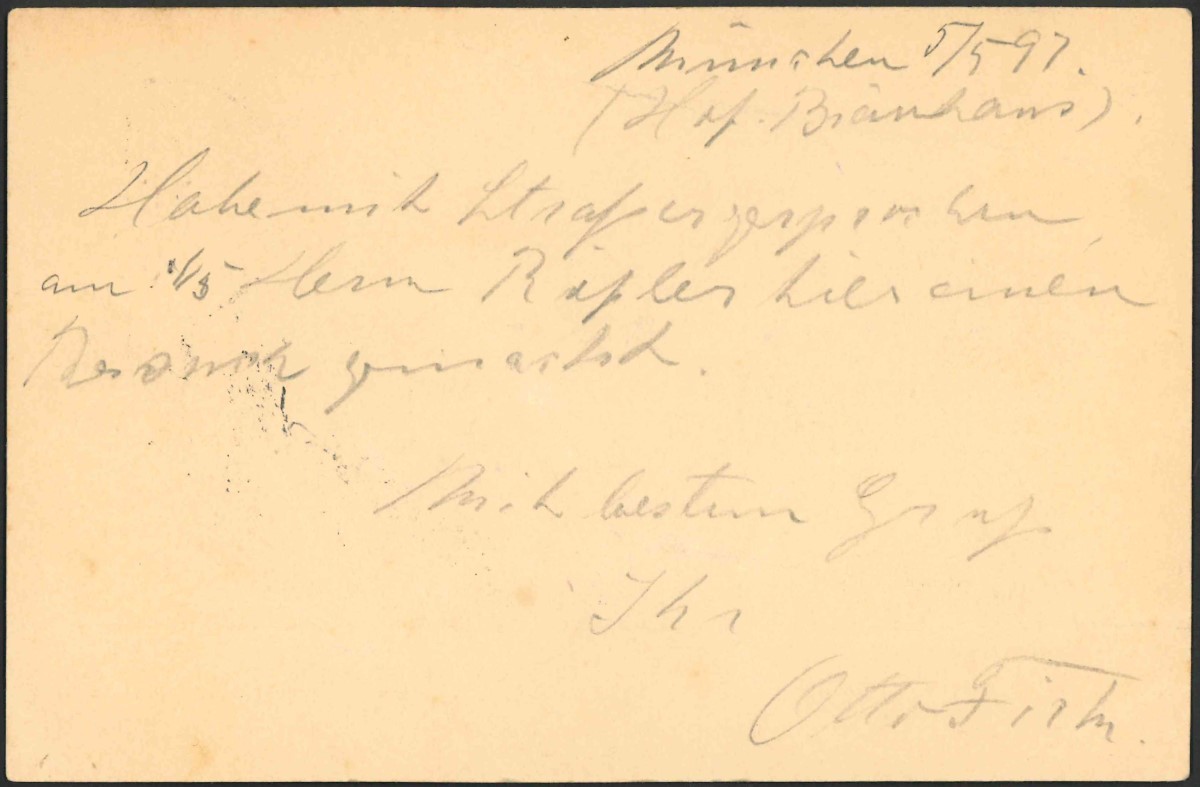 München 5/5 97.
(Hof-Bräuhaus).
Habe mit Strasser gesprochen,
am 1/5 Herrn hier einen
Besuch gemacht.
Mit bestem Gruß
Ihr
Otto